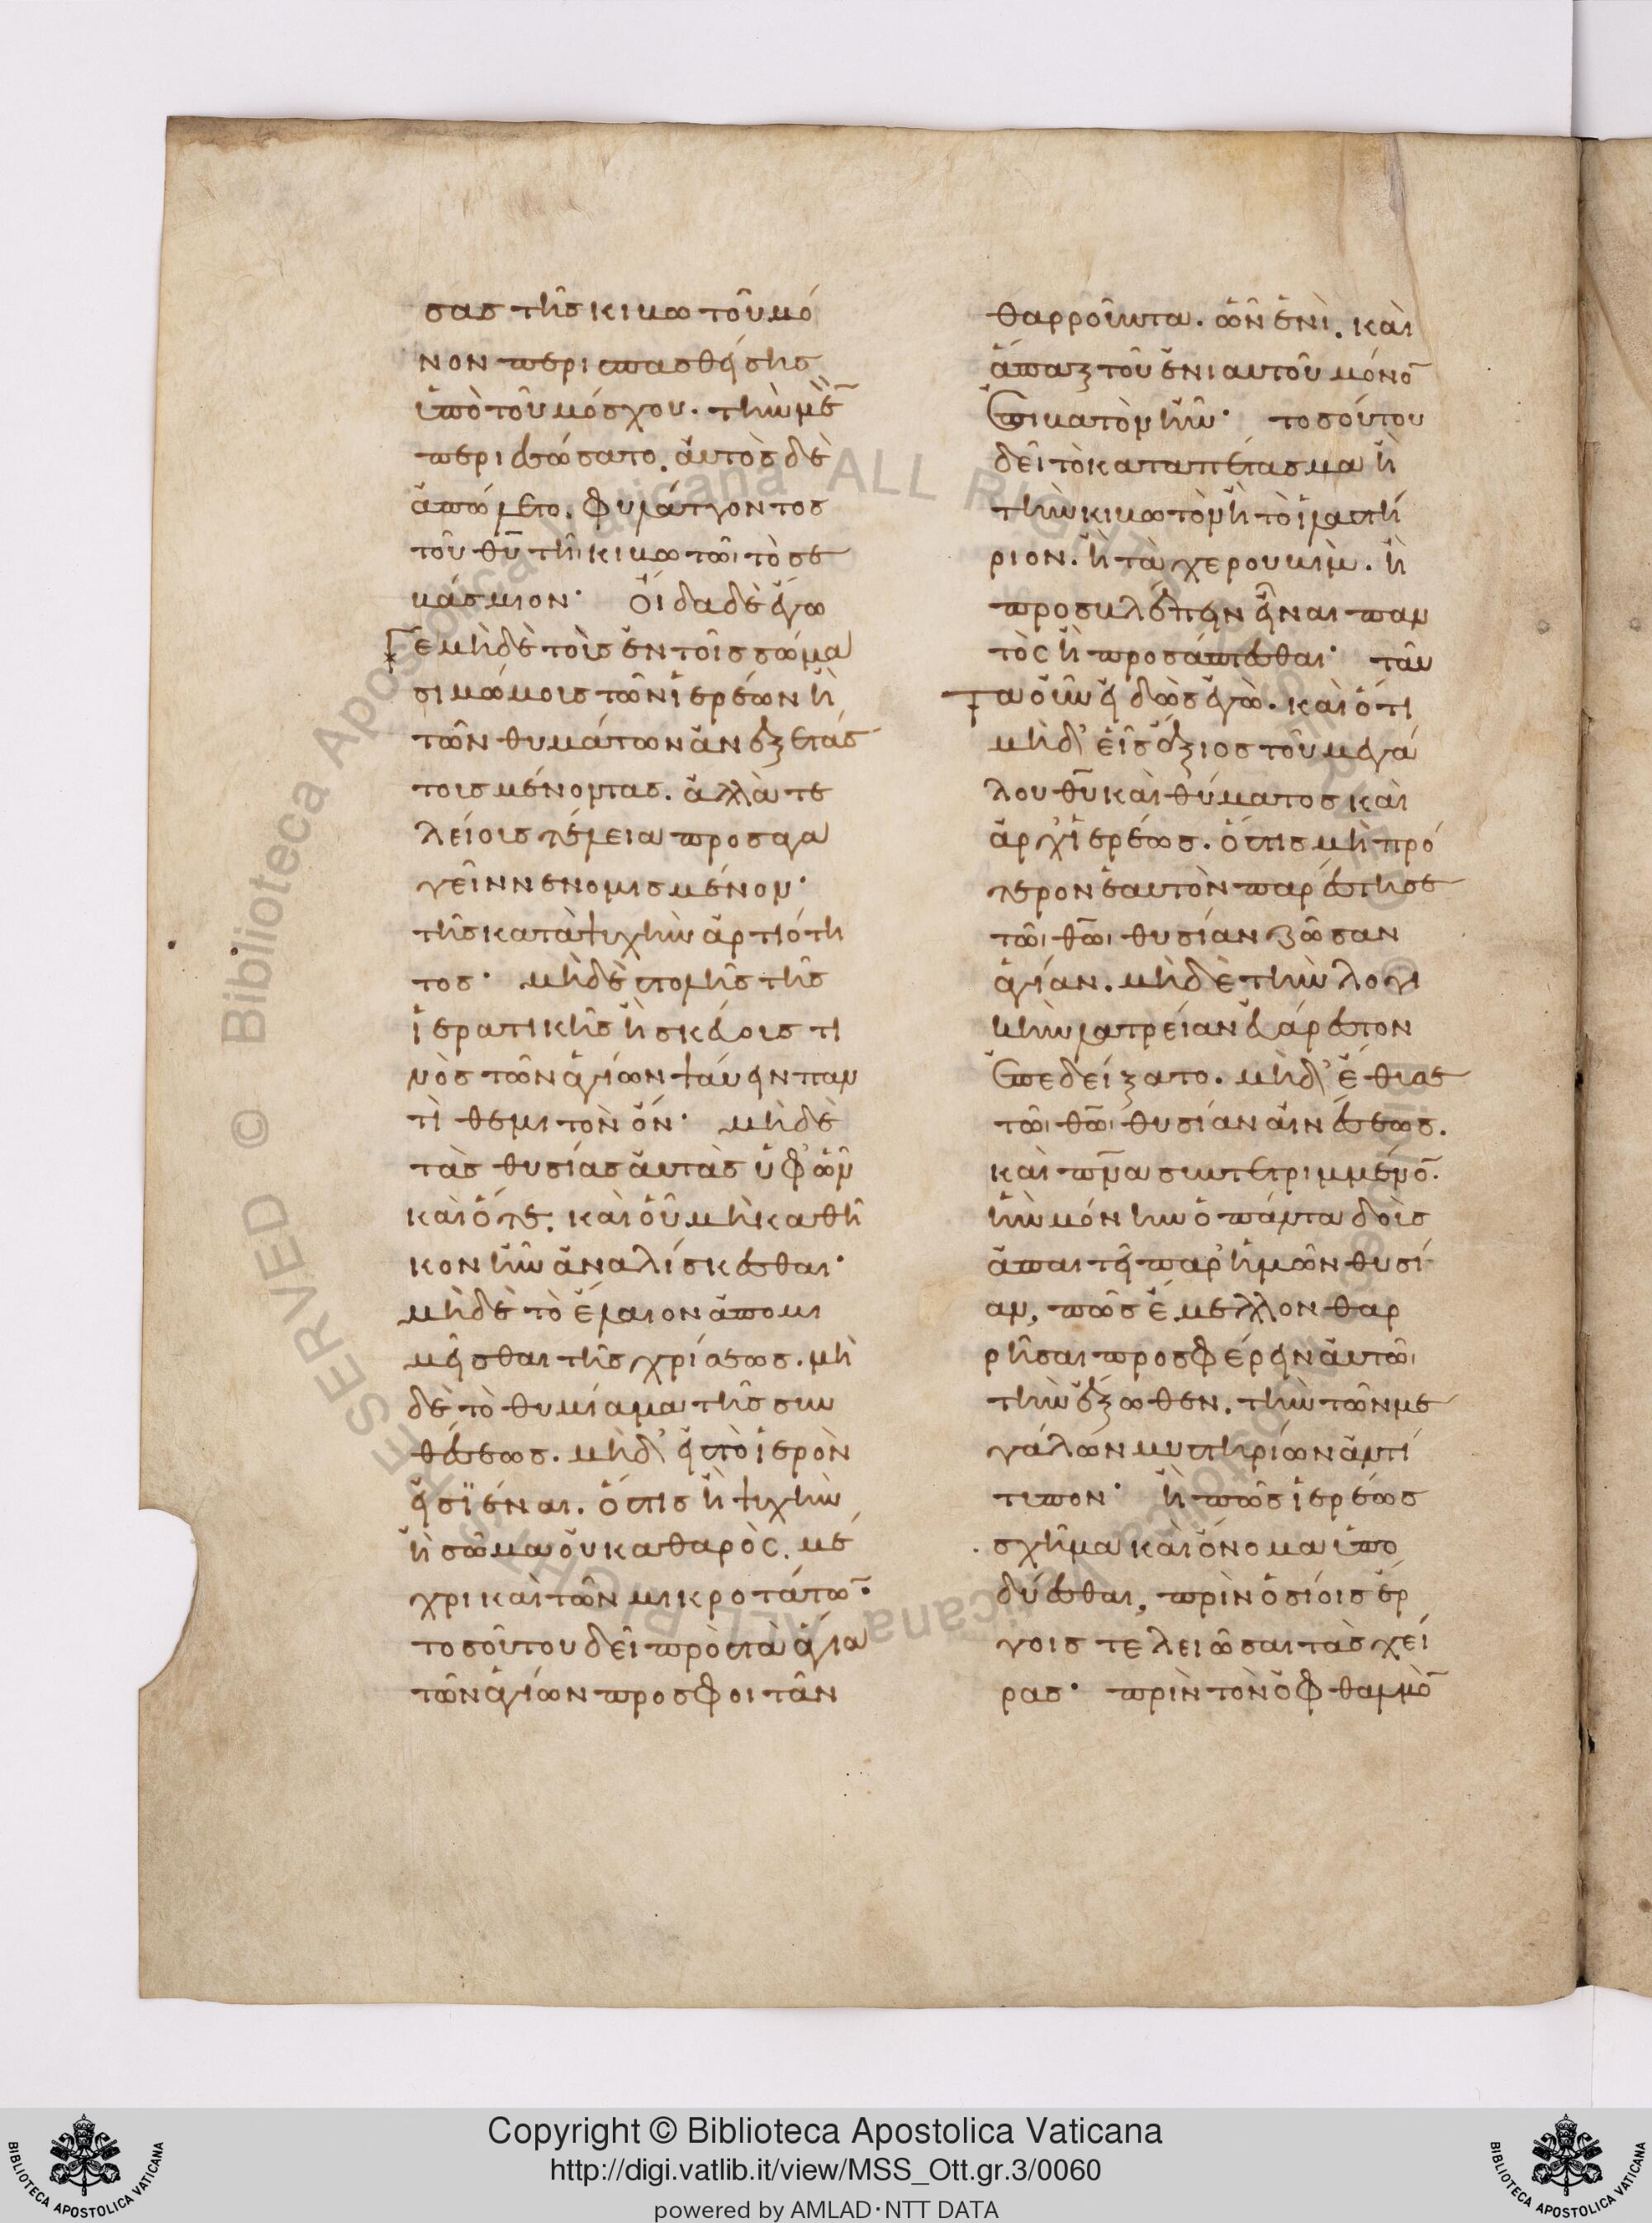 σας τῆς κιβωτοῦ μό
νον περισπασθείσης
ὑπὸ τοῦ μόσχου. τὴν μὲ̅
περιεσώσατο. αὐτὸς δὲ
ἀπώλετο. φυλάττοντος
τοῦ θ̅υ̅ τῆι κιβωτῶι τὸ σε
βάσμιον· οἶδα δὲ ἐγὼ
ἔ μὴ δὲ τοῖς ἐν τοῖς σώμα
σι μώμοις τῶν ἱερέων ἢ
τῶν θυμάτων ἀνεξετάσ
τοις μένοντας. ἀλλὰ τε
λείοις τέλεια προσαγα
γεῖν νενομισμένον·
τῆς κατὰ ψυχὴν ἀρτιότη
τος· μὴ δὲ στολῆς τῆς
ἱερατικῆς ἢ σκεύοις τι
νὸς τῶν ἁγίων ψαύειν παν
τὶ θεμιτὸν ὄν· μὴ δὲ
τὰς θυσίας αὐτὰς ὑφ' ὧν
καὶ ὅτε. καὶ οὗ μὴ καθῆ
κον ἦν ἀναλίσκεσθαι·
μὴ δὲ τὸ ἔλαιον ἀπομι
μεῖσθαι τῆς χρίσεως. μὴ
δὲ τὸ θυμίαμα τῆς συν
θέσεως. μὴ δ' εἰς τὸ ἱερὸν
εἰσϊέναι. ὅστις ἢ ψυχὴν
ἢ σῶμα οὐ καθαρὸς. μέ
χρι καὶ τῶν μικροτάτω̅·
τοσοῦτου δεῖ πρὸς τὰ ἅγια
τῶν ἁγίων προσφοιτᾶν
θαρροῦντα. ὧν ἑνὶ. καὶ
ἅπαξ τοῦ ἐνιαυτοῦ μόνο̅
ἐπιβατὸν ἦν· τοσούτου
δεῖ τὸ καταπέτασμα ἢ
τὴν κιβωτὸν ἢ τὸ ἱλαστή
ριον. ἢ τὰ χερουβὶμ. ἢ
προσβλέπειν εἶναι παν
τὸς ἢ προσάπτεσθαι· ταῦ
τα οὖν εἰδὼς ἐγὼ. καὶ ὅτι
μὴδ' εἷς ἄξιος τοῦ μεγά
λου θ̅υ̅ καὶ θύματος καὶ
ἀρχιερέως. ὅστις μὴ πρό
τερον ἑαυτὸν παρέστησε
τῶι θ̅ω̅ι θυσίαν ζῶσαν
ἁγίαν. μὴ δὲ τὴν λογι
κὴν λατρείαν εὐάρεστον
ἐπεδείξατο. μὴδ' ἔθυσε
τῶι θ̅ω̅ι θυσίαν αἰνέσεως.
καὶ π̅ν̅α συντετριμμένο̅.
ἣν μόνην ὁ πάντα δοὺς
ἀπαιτεῖ παρ' ἡμῶν θυσί
αν, πῶς ἔμελλον θαρ
ρῆσαι προσφέρειν αὐτῶι
τὴν ἔξωθεν. τὴν τῶν με
γάλων μυστηρίων ἀντί
τυπον· ἢ πῶς ἱερέως
σχῆμα καὶ ὄνομα ὑπο
δύεσθαι, πρὶν ὁσίοις ἔρ
γοις τελειῶσαι τὰς χεῖ
ρας· πρὶν τὸν ὀφθαλμὸ̅
Copyright © Biblioteca Apostolica Vaticana
http://digi.vatlib.it/view/MSS_Ott.gr.3/0060
powered by AMLAD·NTT DATA